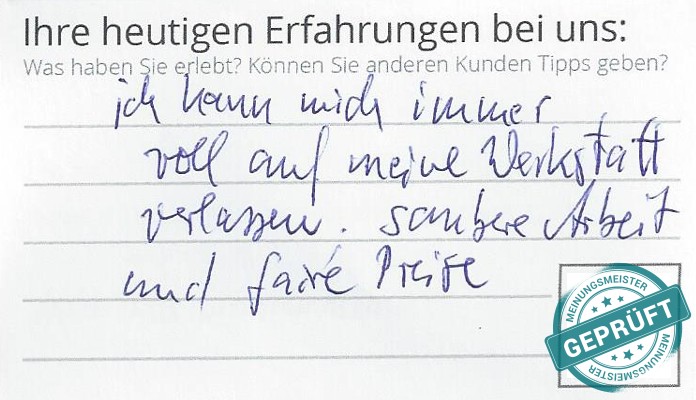 Ihre heutigen Erfahrungen bei uns:
Was haben Sie erlebt? Können Sie anderen Kunden Tipps geben?
ich kann mich immer
voll auf meine Werkstatt
verlassen. saubere Arbeit
und faire Preise
MEINUNGSMEISTER
GEPRÜFT
MEINUNGSMEISTER